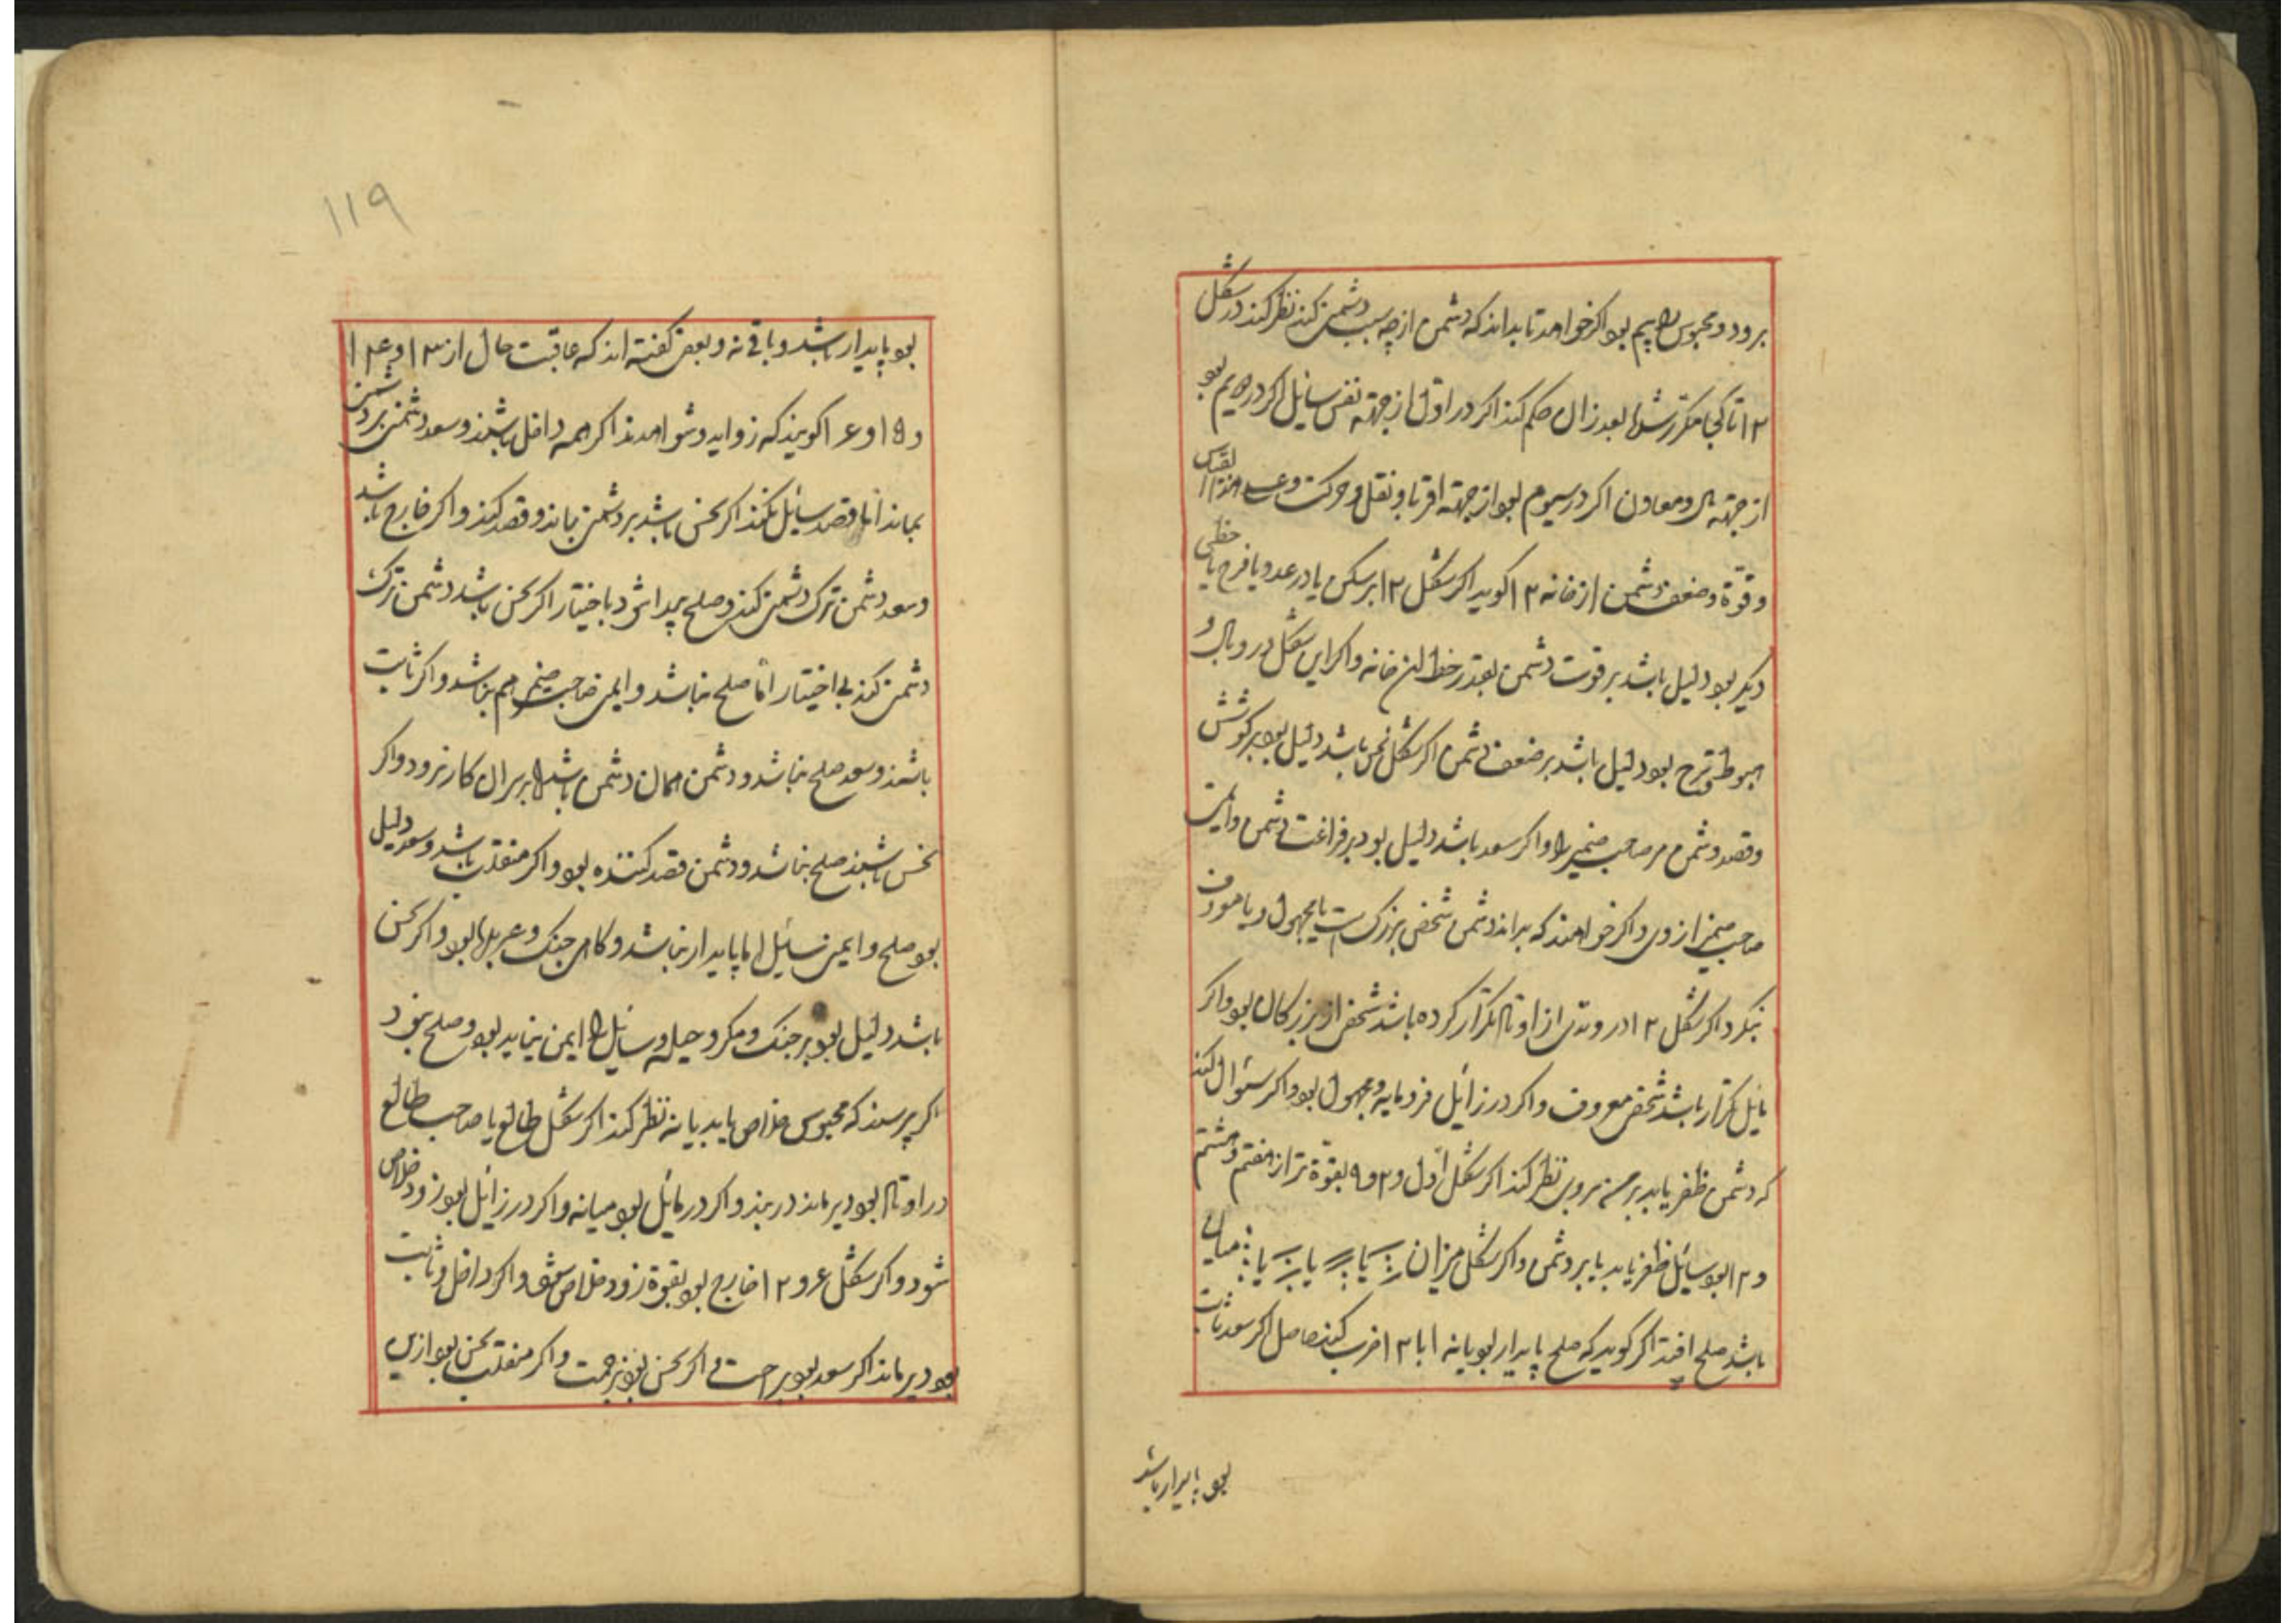 برود و محبوس را بیم بود اگر خواهد تا بداند که دشمن از چه سبب دشمنی کند نظر کند در شکل
۱۲ تا کجا مکرر شود بعد از آن حکم کند اگر در اول از جهته نفس سائل اگر در دویم بود
از جهته مال و معاون اگر در سیوم بود از جهته اقربا و نقل و حرکت و علی هذا القیاس
و قوة و ضعف دشمن از خانه ۱۲ گوید اگر شکل ۱۲ بر سکن یا در عدد یا فرح یا حظی
دیگر بود دلیل باشد بر قوت دشمن بقدر حظ آن خانه و اگر این شکل در وبال و
هبوط و ترح بود دلیل باشد بر ضعف دشمن اگر شکل نحس باشد دلیل بود بر کوشش
و قصد دشمن مر صاحب ضمیر را و اگر سعد باشد دلیل بود بر فراغت دشمن و ایمنی
صاحب ضمیر از وی و اگر خواهند که بدانند دشمن شخص بزرگست یا مجهول و یا معروف
بنگرد اگر شکل ۱۲ در وتدی از اوتاد تکرار کرده باشد شخص از بزرگان بود و اگر
مایل تکرار باشد شخص معروف و اگر در زائل فرومایه و مجهول بود و اگر سئوال کند
که دشمن ظفر یابد بر من نظر کند اگر شکل اول و ۲ و ۹ بقوة تر از هفتم و هشتم
و ۱۲ بود سائل ظفر یابد بر دشمن و اگر شکل میزان
باشد صلح افتد اگر گوید که صلح پایدار بود یا نه ۱ با ۱۲ ضرب کند حاصل اگر سعد ثابت
بود پایدار باشد
۱۱۹
بود پایدار باشد و باقی نه و بعضی گفته اند که عاقبت حال از ۱۳ و ۱۴
و ۱۵ و ۱۶ گویند که زواید و شواهدند اگر همه داخل باشند و سعد دشمن بر دشمنی
بماند اما قصد سائل نکند اگر نحس باشد بر دشمنی بماند و قصد کند و اگر خارج باشد
و سعد دشمن ترک دشمنی کند و صلح پیدا شود باختیار اگر نحس باشد دشمن ترک
دشمنی کند بی اختیار اما صلح نباشد و ایمنی صاحب ضمیر هم نباشد و اگر ثابت
باشند و سعد صلح نباشد و دشمن همان دشمن باشد اما بر سر آن کار نرود و اگر
نحس باشند صلح نباشد و دشمن قصد کننده بود و اگر منقلب باشد و سعد دلیل
بود صلح و ایمنی سائل اما پایدار نباشد و گاهی جنگ و عربدها بود و اگر نحس
باشد دلیل بود بر جنگ و مکر و حیله و سائل را ایمن نباید بود و صلح نبود
اگر پرسند که محبوس خلاص یابد یا نه نظر کند اگر شکل طالع یا صاحب طالع
در اوتاد بود دیر ماند در بند و اگر در مائل بود میانه و اگر در زائل بود زود خلاص
شود و اگر شکل ۶ و ۱۲ خارج بود بقوة زود خلاص شود و اگر داخل و ثابت
بود دیر ماند اگر سعد بود براحت و اگر نحس بود بزحمت و اگر منقلب نحس بود ازین